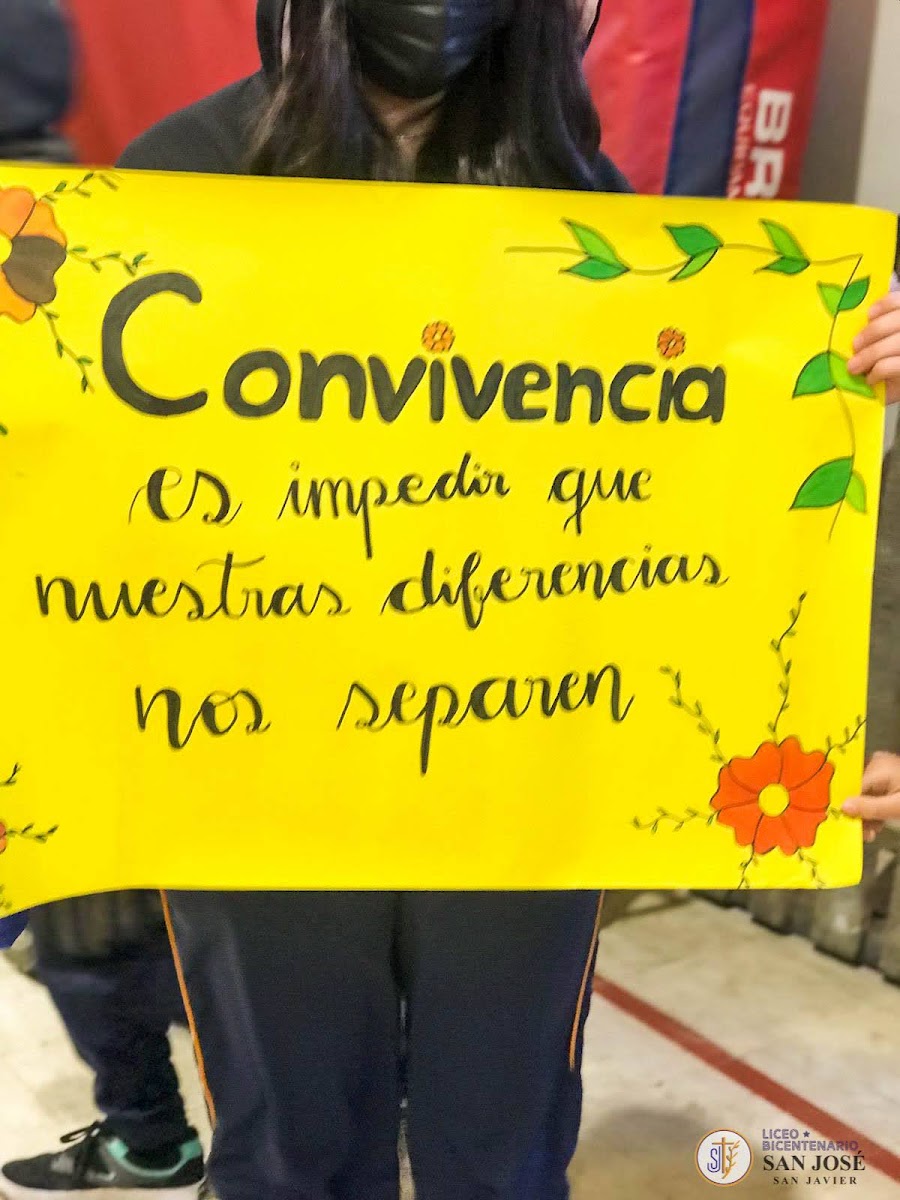 Convivencia
es impedir que
nuestras diferencias
nos separen
BR
LICEO
BICENTENARIO
SAN JOSÉ
SAN JAVIER